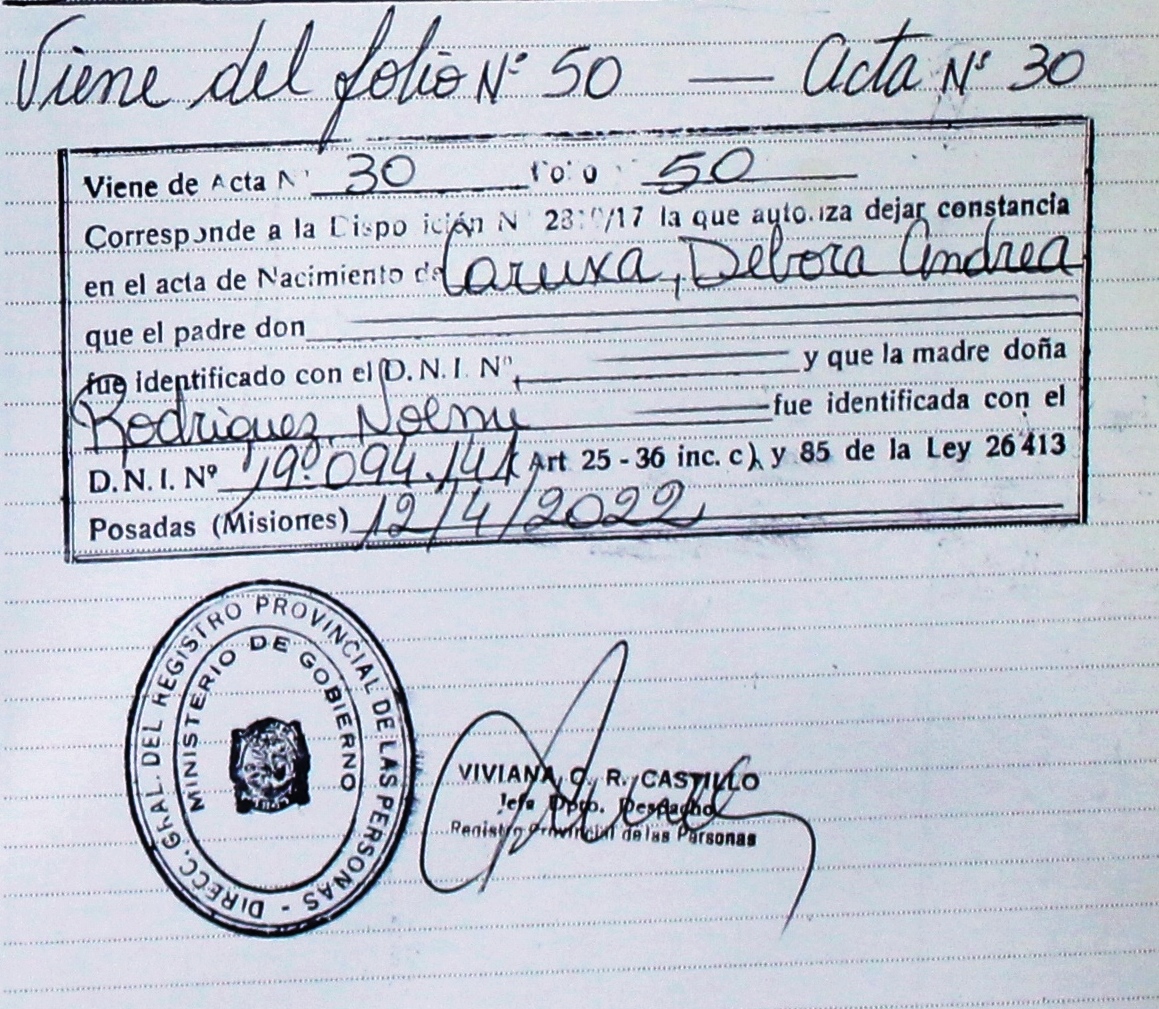 Viene del folio Nº 50 — Acta Nº 30
Viene de Acta Nº 30 Folio 50
Corresponde a la Disposición Nº /17 la que autoriza dejar constancia
en el acta de Nacimiento de Debora Andrea
que el padre don
fue identificado con el D. N. I. Nº y que la madre doña
Rodriguez, Noemi fue identificada con el
D. N. I. Nº (Art 25 - 36 inc. c) y 85 de la Ley 26413
Posadas (Misiones) 12/4/2022
DIRECC. GRAL. DEL REGISTRO PROVINCIAL DE LAS PERSONAS -
MINISTERIO DE GOBIERNO
VIVIANA C. R. CASTILLO
Jefa Dpto. Despacho
Registro Provincial de las Personas